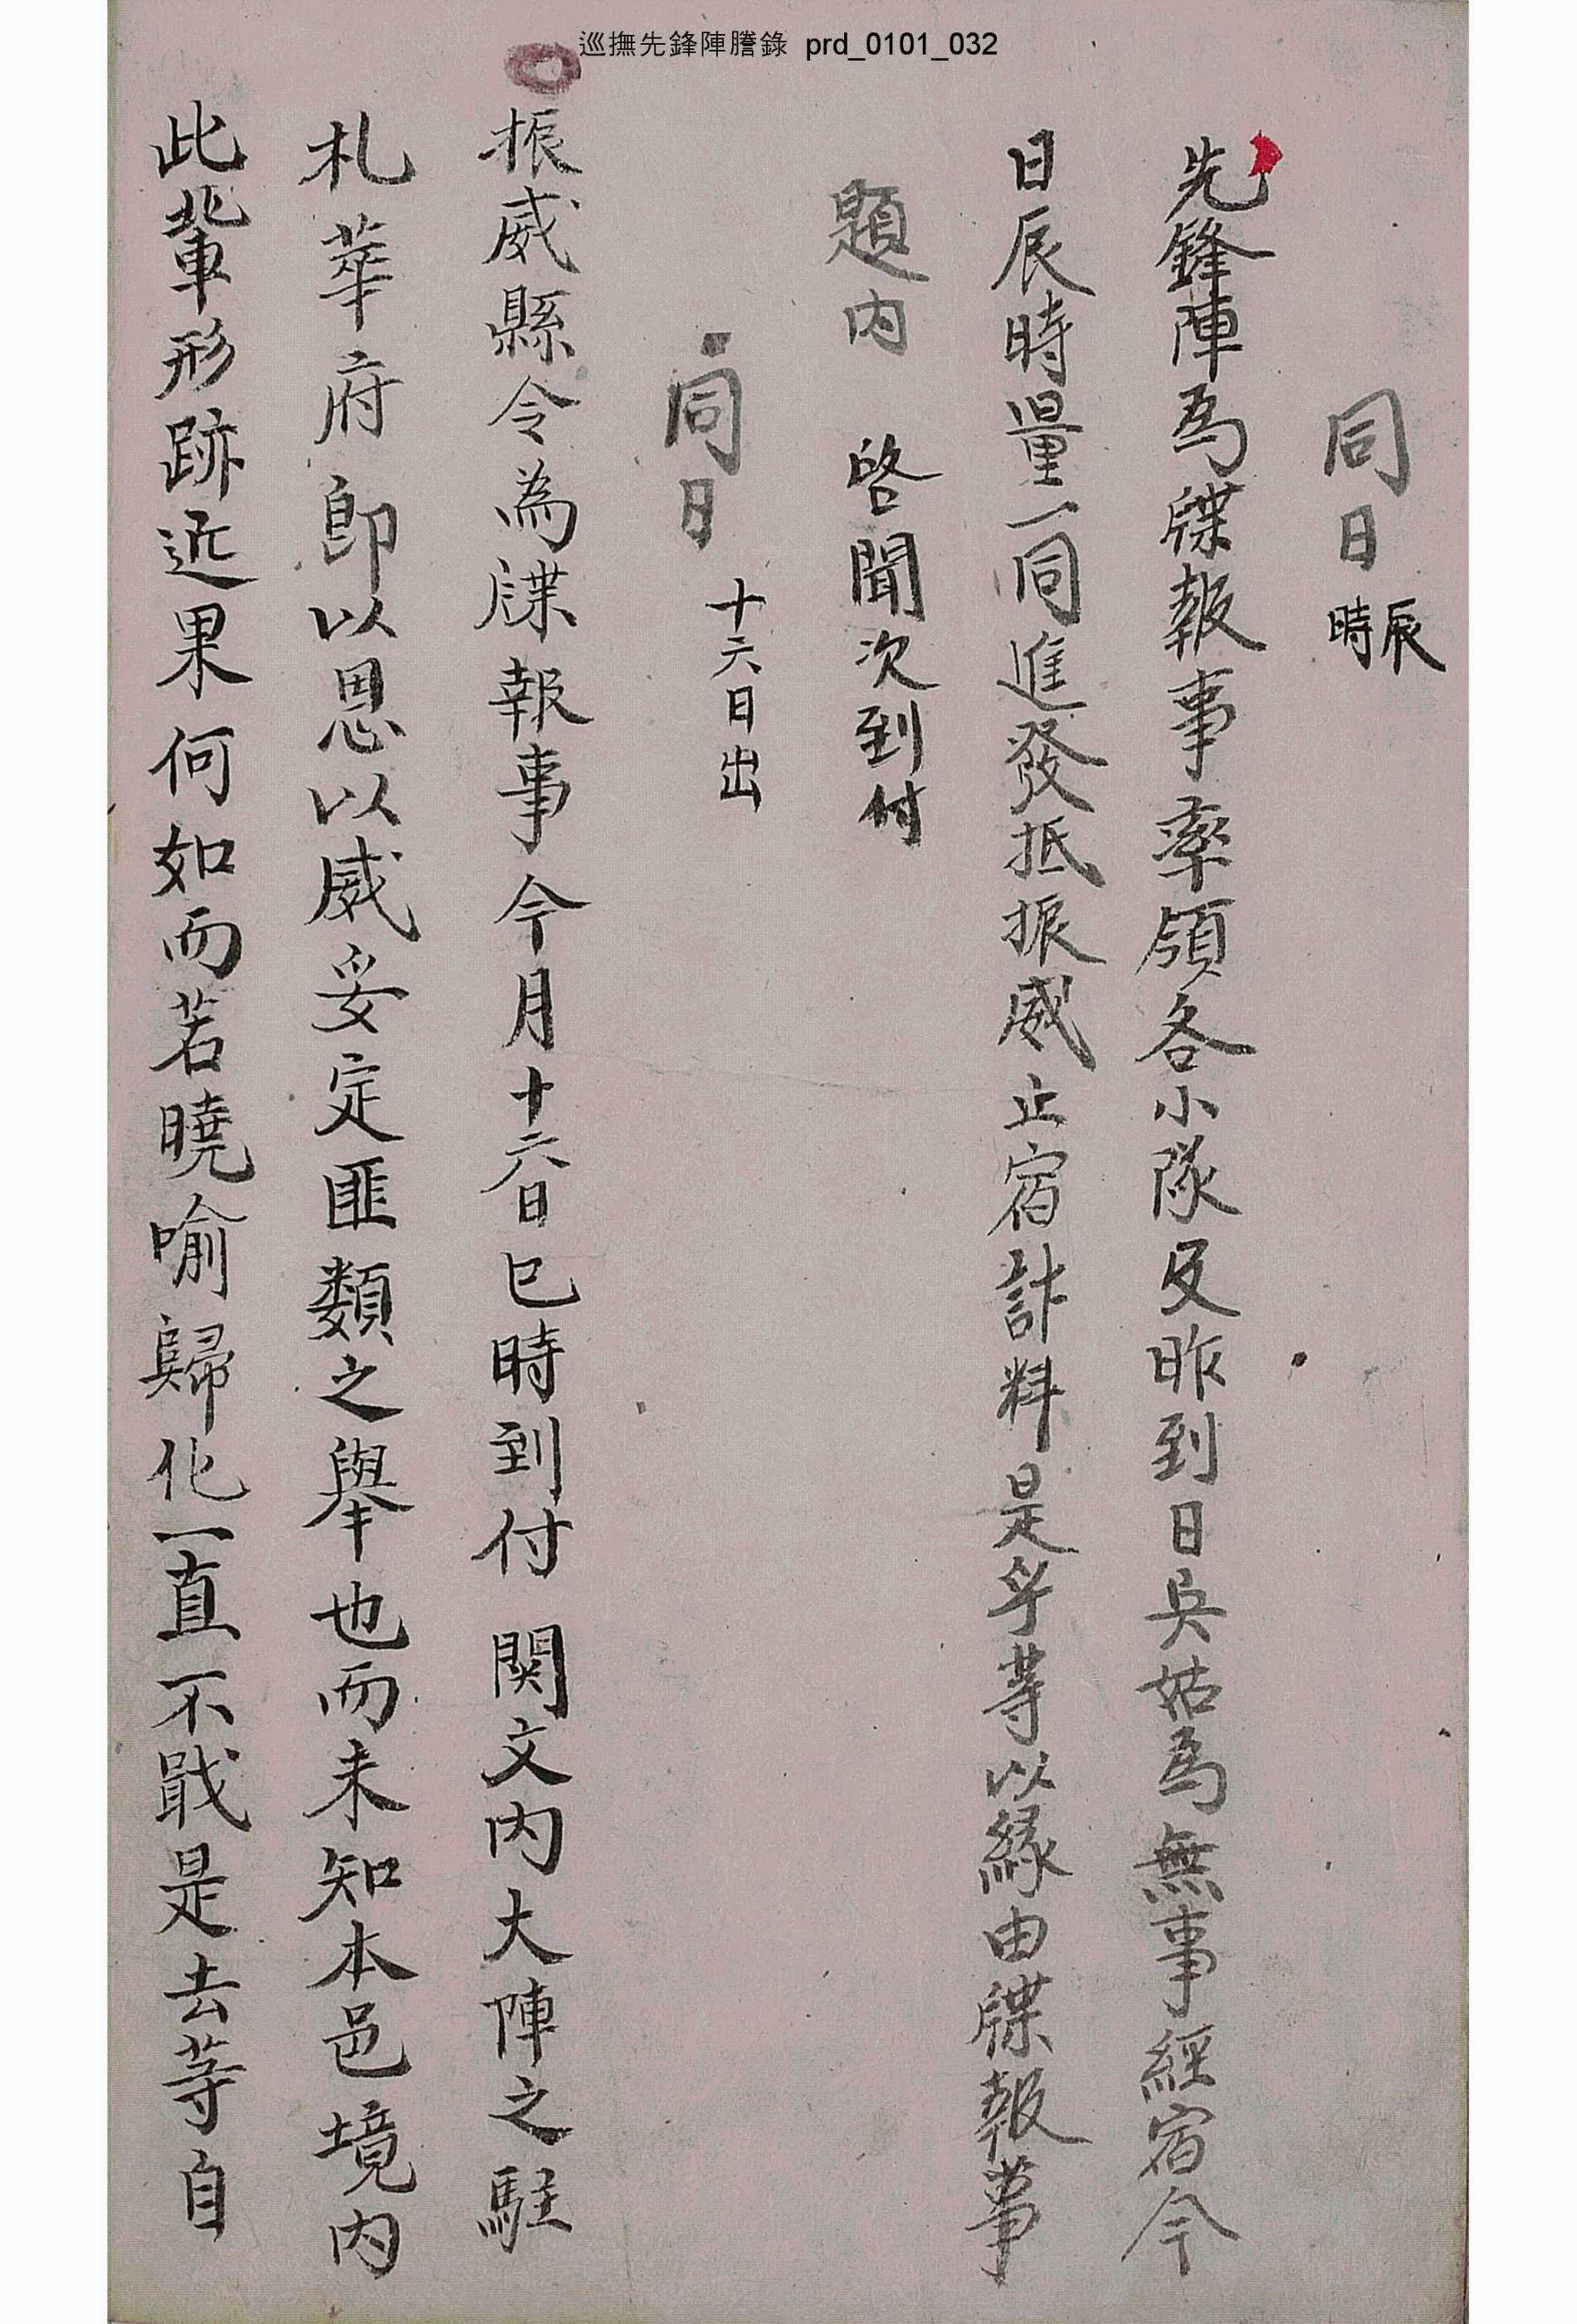 巡撫先鋒陣謄錄 prd_0101_032
同日 辰時
先鋒陣爲牒報事率領各小隊及昨到日兵姑爲無事經宿今
日辰時量一同進發抵振威止宿計料是乎等以緣由牒報事
題內 啓聞次到付
同日 十六日出
振威縣令為牒報事今月十六日巳時到付 関文內大陣之駐
札華府卽以恩以威妥定匪類之擧也而未知本邑境內
此輩形跡近果何如而若曉喻歸化一直不戢是去等自